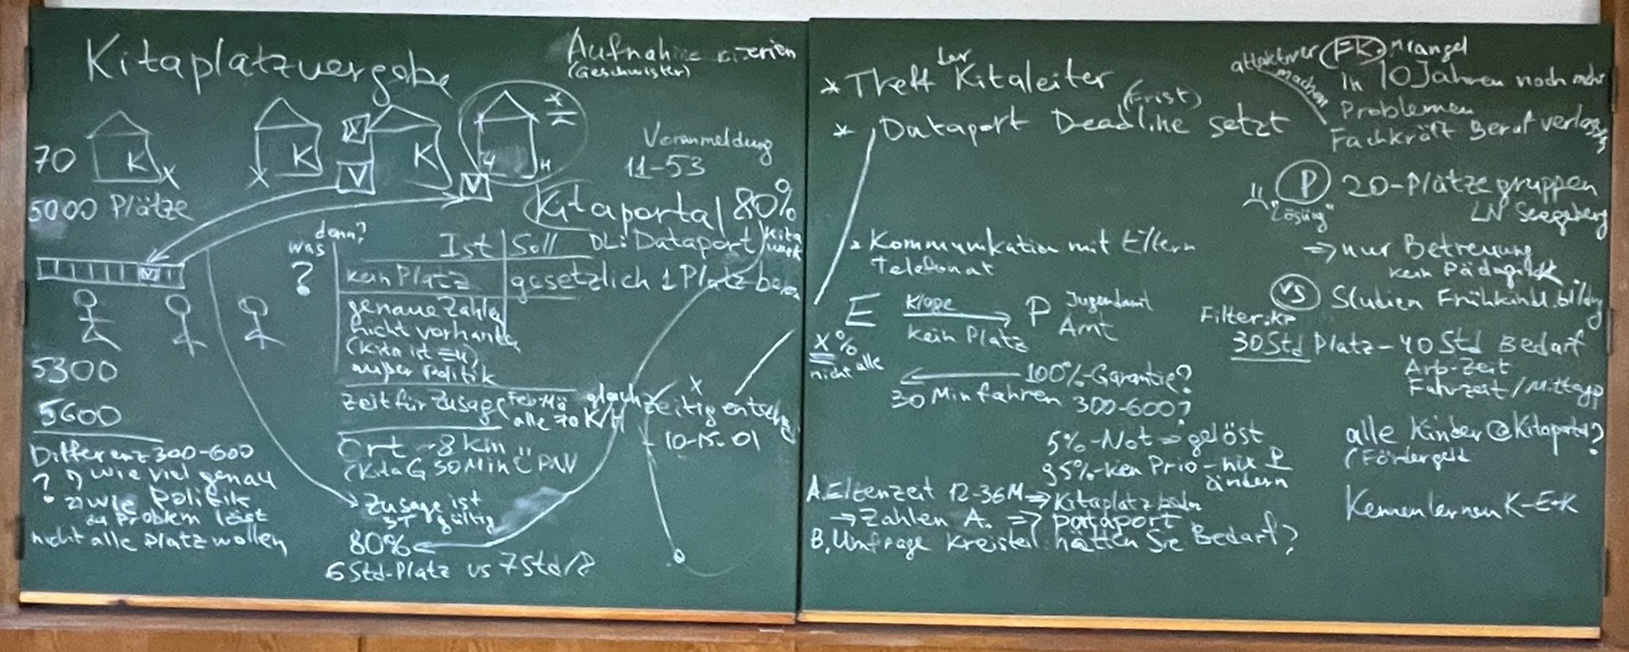 Kitaplatzvergabe
Aufnahme
(Geschwister)
70 K K K
Voranmeldung
11-53
5000 Plätze
Kitaportal 80%
DL: Dataport
was denn?
?
Ist | Soll
kein Platz | gesetzlich 1 Platz
genaue Zahlen
nicht vorhanden
außer Politik
Zeit für Zusage
alle 70 K/H
gleichzeitig
10-15.01
5300
5600
Differenz 300-600
? 1) wie viel genau
2) wie Politik
Problem löst
nicht alle Platz wollen
Ort ~8 km
Zusage ist
gültig
80%
6 Std-Platz vs 7 Std/8
* Treff der Kitaleiter
* Dataport Deadline (Frist) setzt
* Kommunikation mit Eltern
Telefonat
E Klage P Jugendamt
kein Platz Amt
x%
nicht alle
100%-Garantie?
30 Min fahren 300-600?
5%-Not => gelöst
95%-
ändern
A. Elternzeit 12-36M => Kitaplatz
-> Zahlen A. => Dataport
B. Umfrage Kreisteil hätten Sie Bedarf?
attraktiver machen
FK. Mangel
In 10 Jahren noch mehr
Problemen
Fachkräft Beruf
P 20-Plätze gruppen
"Lösung"
LN
=> nur Betreuung
kein
vs Studien
30 Std Platz - 40 Std Bedarf
Arb-Zeit
Fahrzeit /
alle Kinder @ Kitaportal?
(Fördergeld
Kennenlernen K-E+K